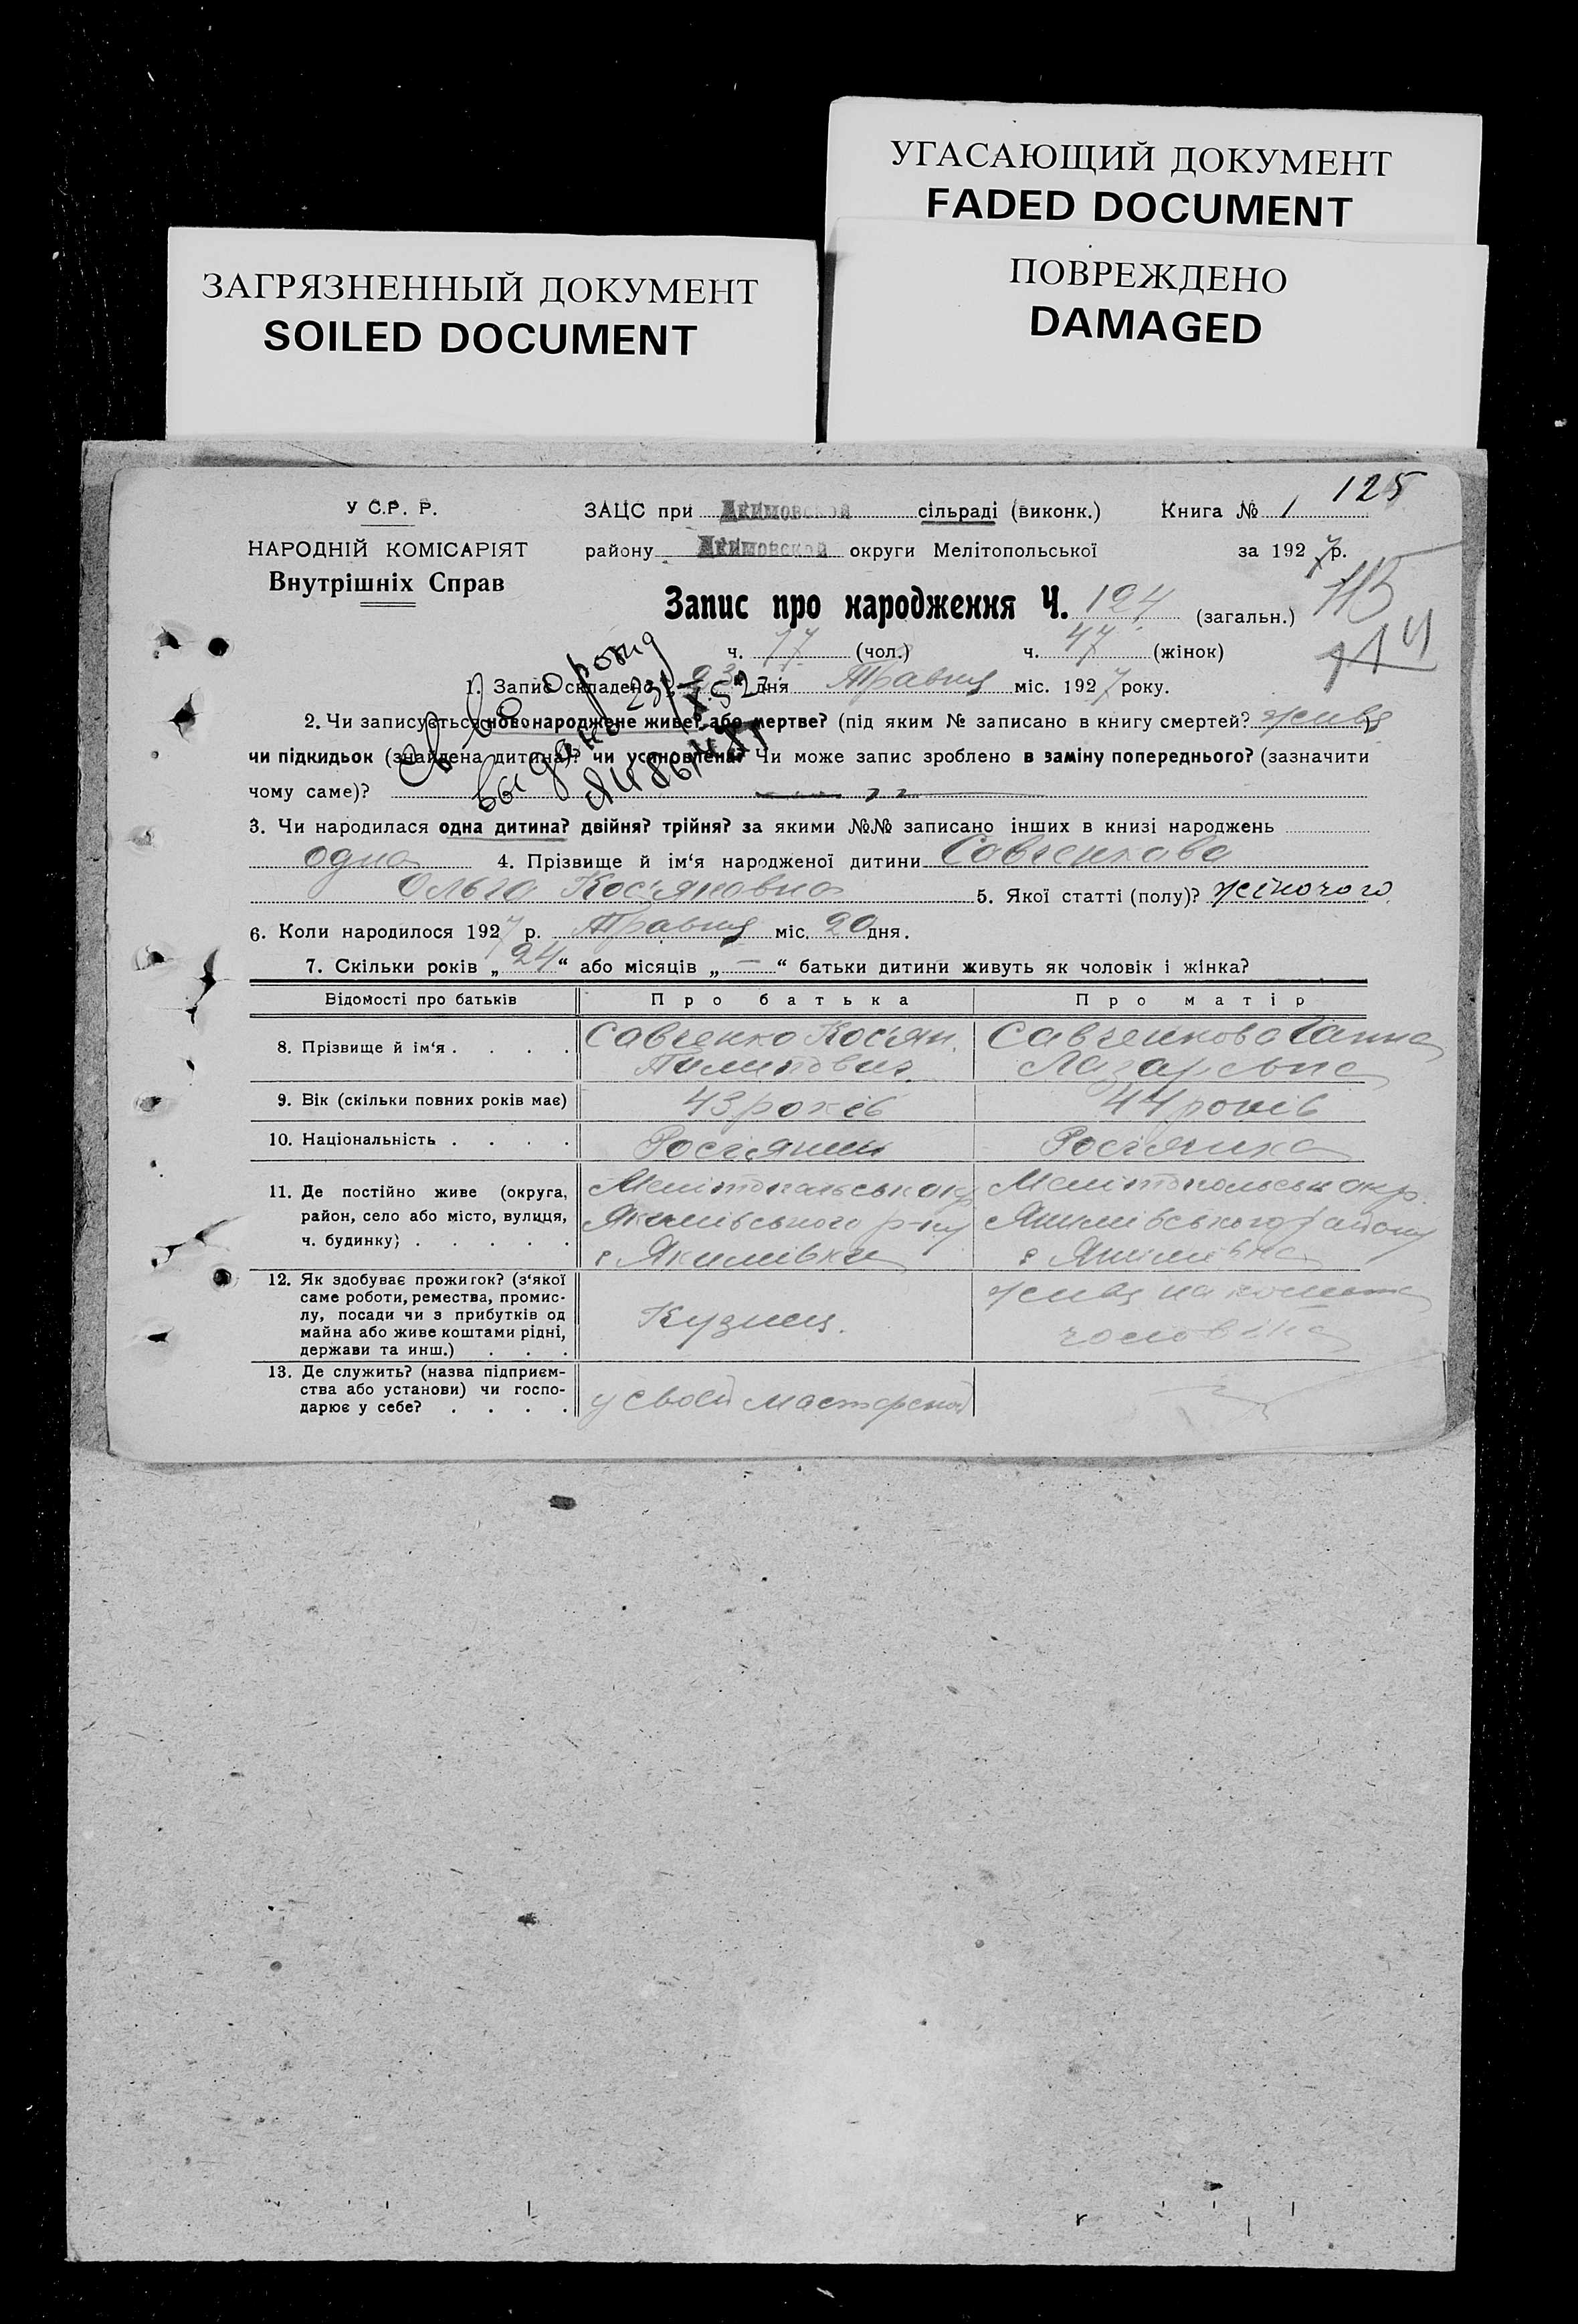 УГАСАЮЩИЙ ДОКУМЕНТ
FADED DOCUMENT
ЗАГРЯЗНЕННЫЙ ДОКУМЕНТ
SOILED DOCUMENT
ПОВРЕЖДЕНО
DAMAGED
125
У С.Р. Р.
НАРОДНІЙ КОМІСАРІЯТ
Внутрішніх Справ
ЗАЦС при Акимовской сільраді (виконк.) Книга № 1
району Акимовской округи Мелітопольської за 1927 р.
Запис про народження Ч. 124 (загальн.)
115
114
ч. 77 (чол.) ч. 47 (жінок)
Св во о рожд
выдано 23/X.52
1. Запис складено „23“ дня Травня міс. 1927 року.
2. Чи записується новонароджене живе? або мертве? (під яким № записано в книгу смертей? живе)
чи підкидьок (знайдена дитина)? чи усиновлена? Чи може запис зроблено в заміну попереднього? (зазначити
чому саме)?
3. Чи народилася одна дитина? двійня? трійня? за якими №№ записано інших в книзі народжень
одна 4. Прізвище й ім‘я народженої дитини Савченкова
Ольга Кос'яновна 5. Якої статті (полу)? жіночого
6. Коли народилося 1927 р. Травня міс. 20 дня.
7. Скільки років „24“ або місяців „—“ батьки дитини живуть як чоловік і жінка?
Відомості про батьків Про батька Про матір
8. Прізвище й ім‘я . . . . Савченко Кос'ян. Савченкова Ганна
Пилипович Лазарьвна
9. Вік (скільки повних років має) 43 років 44 років
10. Національність . . . . Росіянин Росіянка
11. Де постійно живе (округа, Мелітопольськ окр Мелітопольськ окр.
район, село або місто, вулиця, Якимівського р-ну Якимівського району
ч. будинку) . . . . . с Якимівка с Якимівка
12. Як здобуває прожиток? (з‘якої
саме роботи, ремества, промис-
лу, посади чи з прибутків од
майна або живе коштами рідні,
держави та инш.) . . .
Кузнец.
живе на кошта
чоловіка
13. Де служить? (назва підприєм-
ства або установи) чи госпо-
дарює у себе? . . . .
у своей мастерской